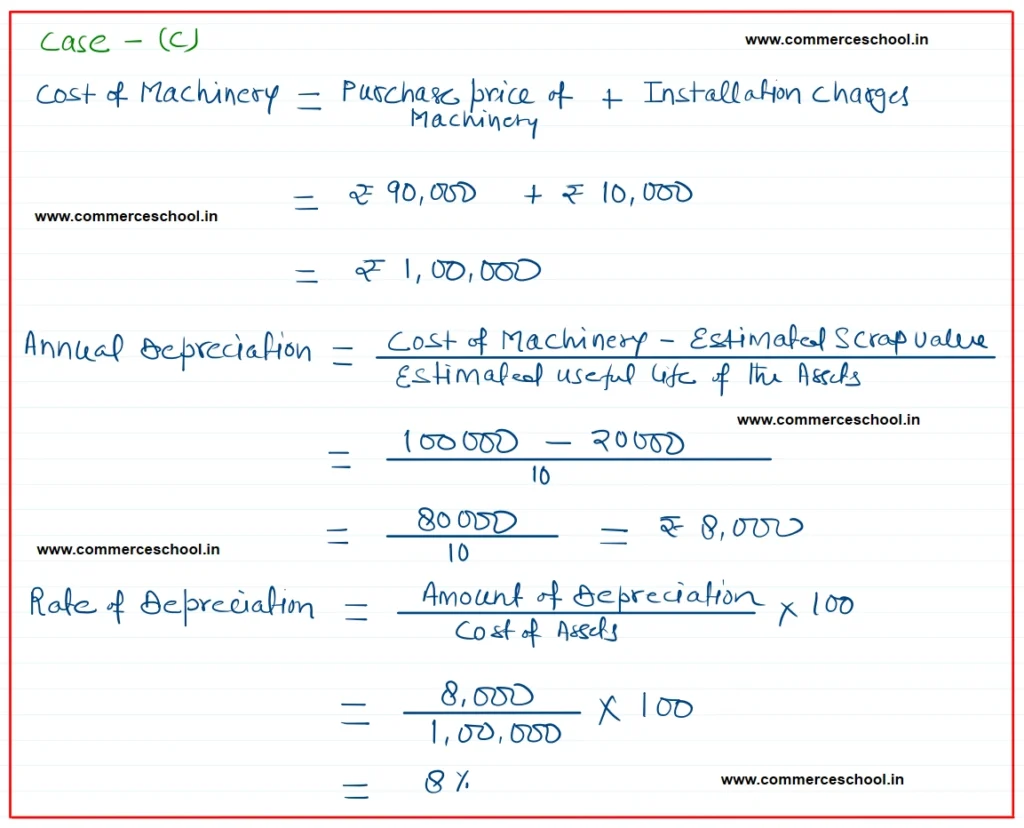 Case - (C)
www.commerceschool.in
Cost of Machinery = Purchase price of Machinery + Installation Charges
= ₹ 90,000 + ₹ 10,000
www.commerceschool.in
= ₹ 1,00,000
Annual Depreciation = Cost of Machinery - Estimated Scrap value
Estimated useful life of the Assets
www.commerceschool.in
= 100000 - 20000
10
= 80000 = ₹ 8,000
10
www.commerceschool.in
Rate of Depreciation = Amount of Depreciation × 100
Cost of Assets
= 8,000 × 100
1,00,000
= 8%
www.commerceschool.in